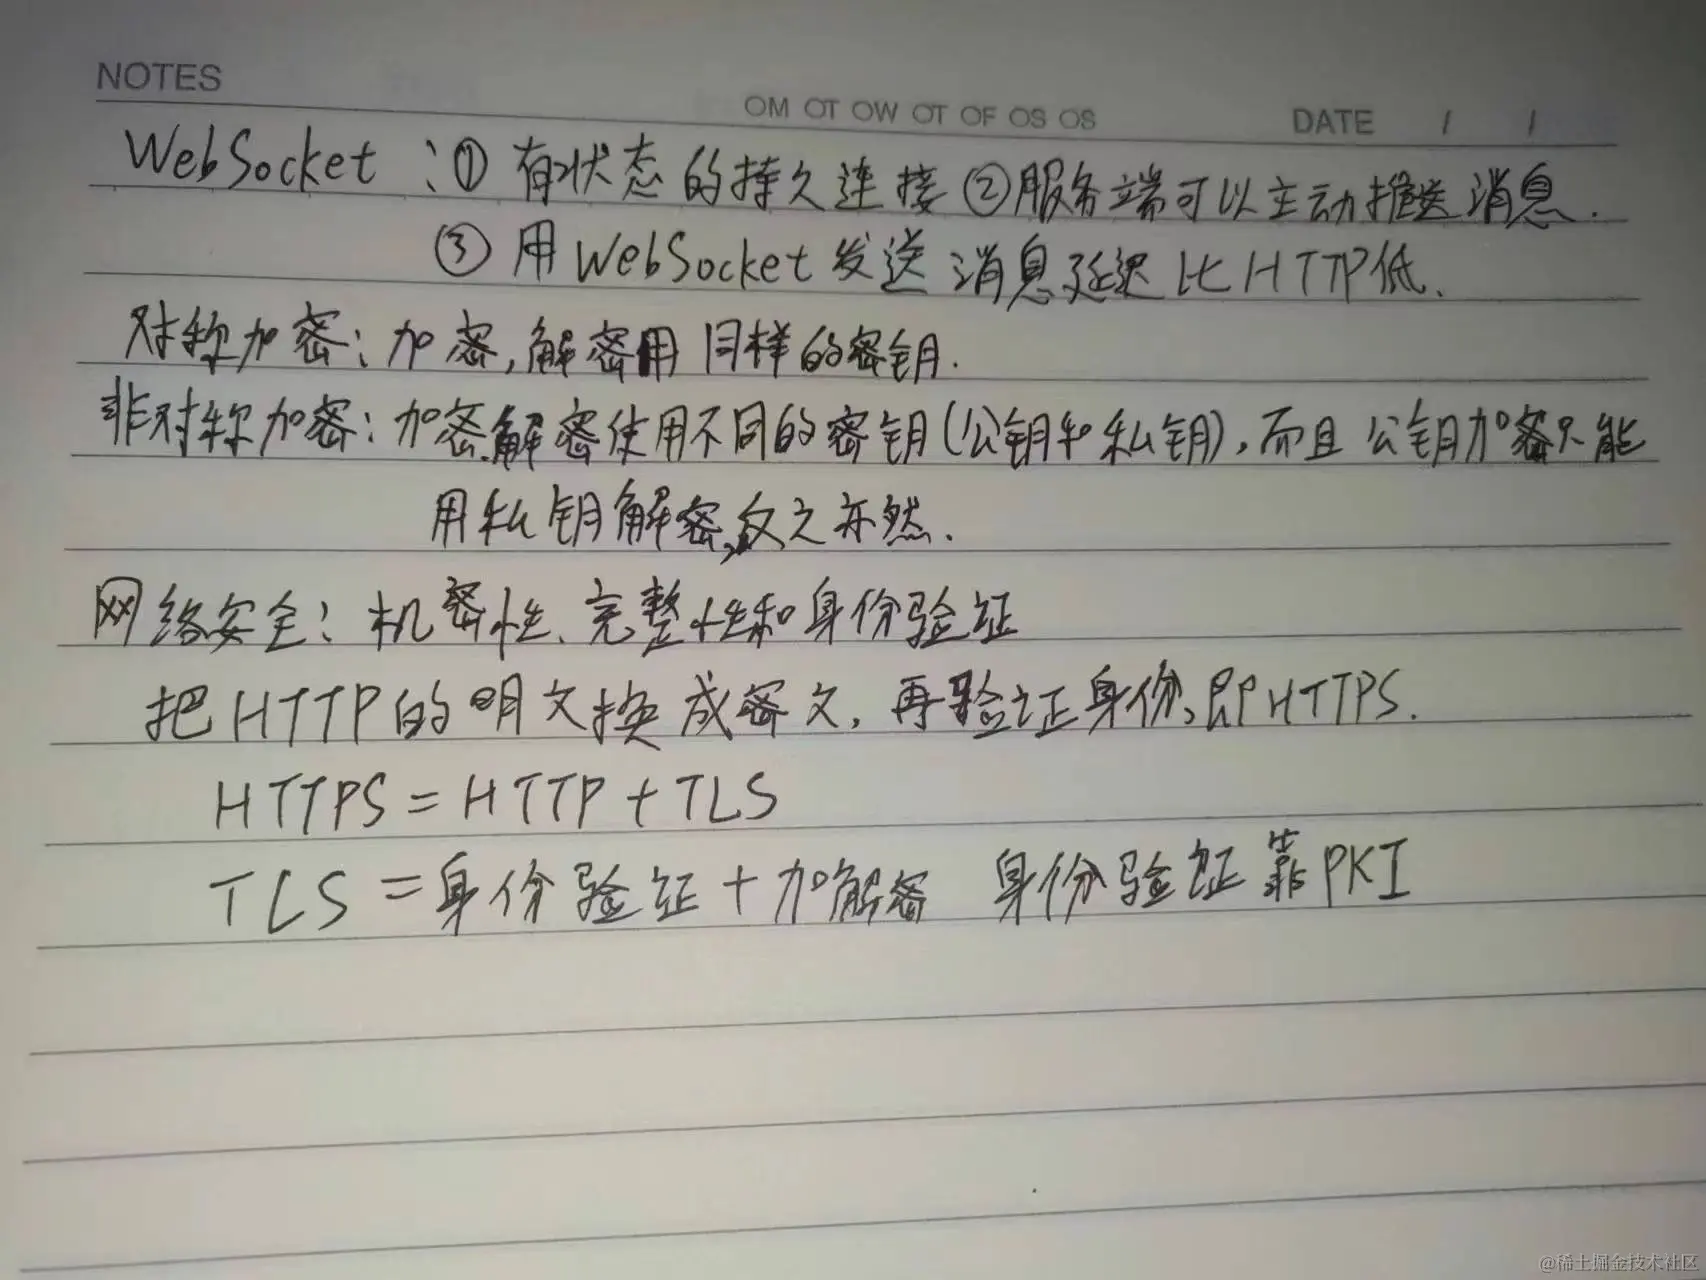 NOTES
OM OT OW OT OF OS OS
DATE / /
WebSocket：① 有状态的持久连接 ②服务端可以主动推送消息.
③ 用WebSocket发送消息延迟比HTTP低.
对称加密：加密,解密用同样的密钥.
非对称加密：加密、解密使用不同的密钥(公钥和私钥),而且公钥加密只能
用私钥解密,反之亦然.
网络安全：机密性、完整性和身份验证
把HTTP的明文换成密文,再验证身份,即HTTPS.
HTTPS=HTTP+TLS
TLS=身份验证+加解密 身份验证靠PKI
@稀土掘金技术社区